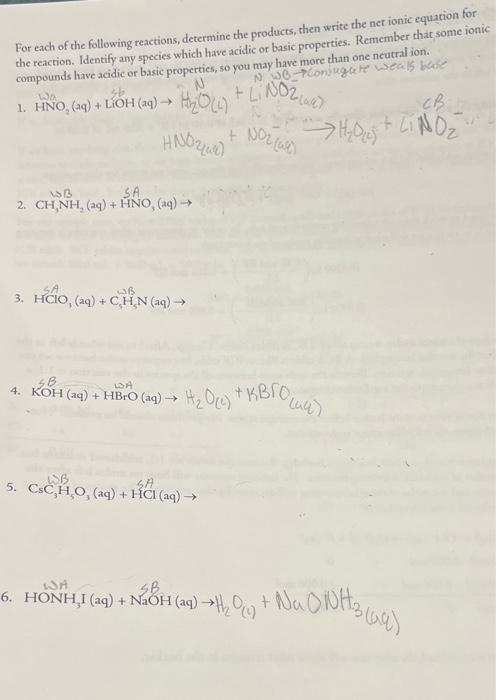 For each of the following reactions, determine the products, then write the net ionic equation for
the reaction. Identify any species which have acidic or basic properties. Remember that some ionic
compounds have acidic or basic properties, so you may have more than one neutral ion.
N WB→conjugate weak base
Wa Sb N
1. HNO₂ (aq) + LiOH (aq) → H₂O(l) + LiNO₂(aq)
CB
HNO₂(aq) + NO₂⁻(aq) → H₂O(l) + LiNO₂⁻
WB SA
2. CH₃NH₂ (aq) + HNO₃ (aq) →
SA WB
3. HClO₃ (aq) + C₅H₅N (aq) →
SB WA
4. KOH (aq) + HBrO (aq) → H₂O(l) + KBrO(aq)
WB SA
5. CsC₃H₅O₃ (aq) + HCl (aq) →
WA SB
6. HONH₃I (aq) + NaOH (aq) → H₂O(l) + NaONH₃(aq)